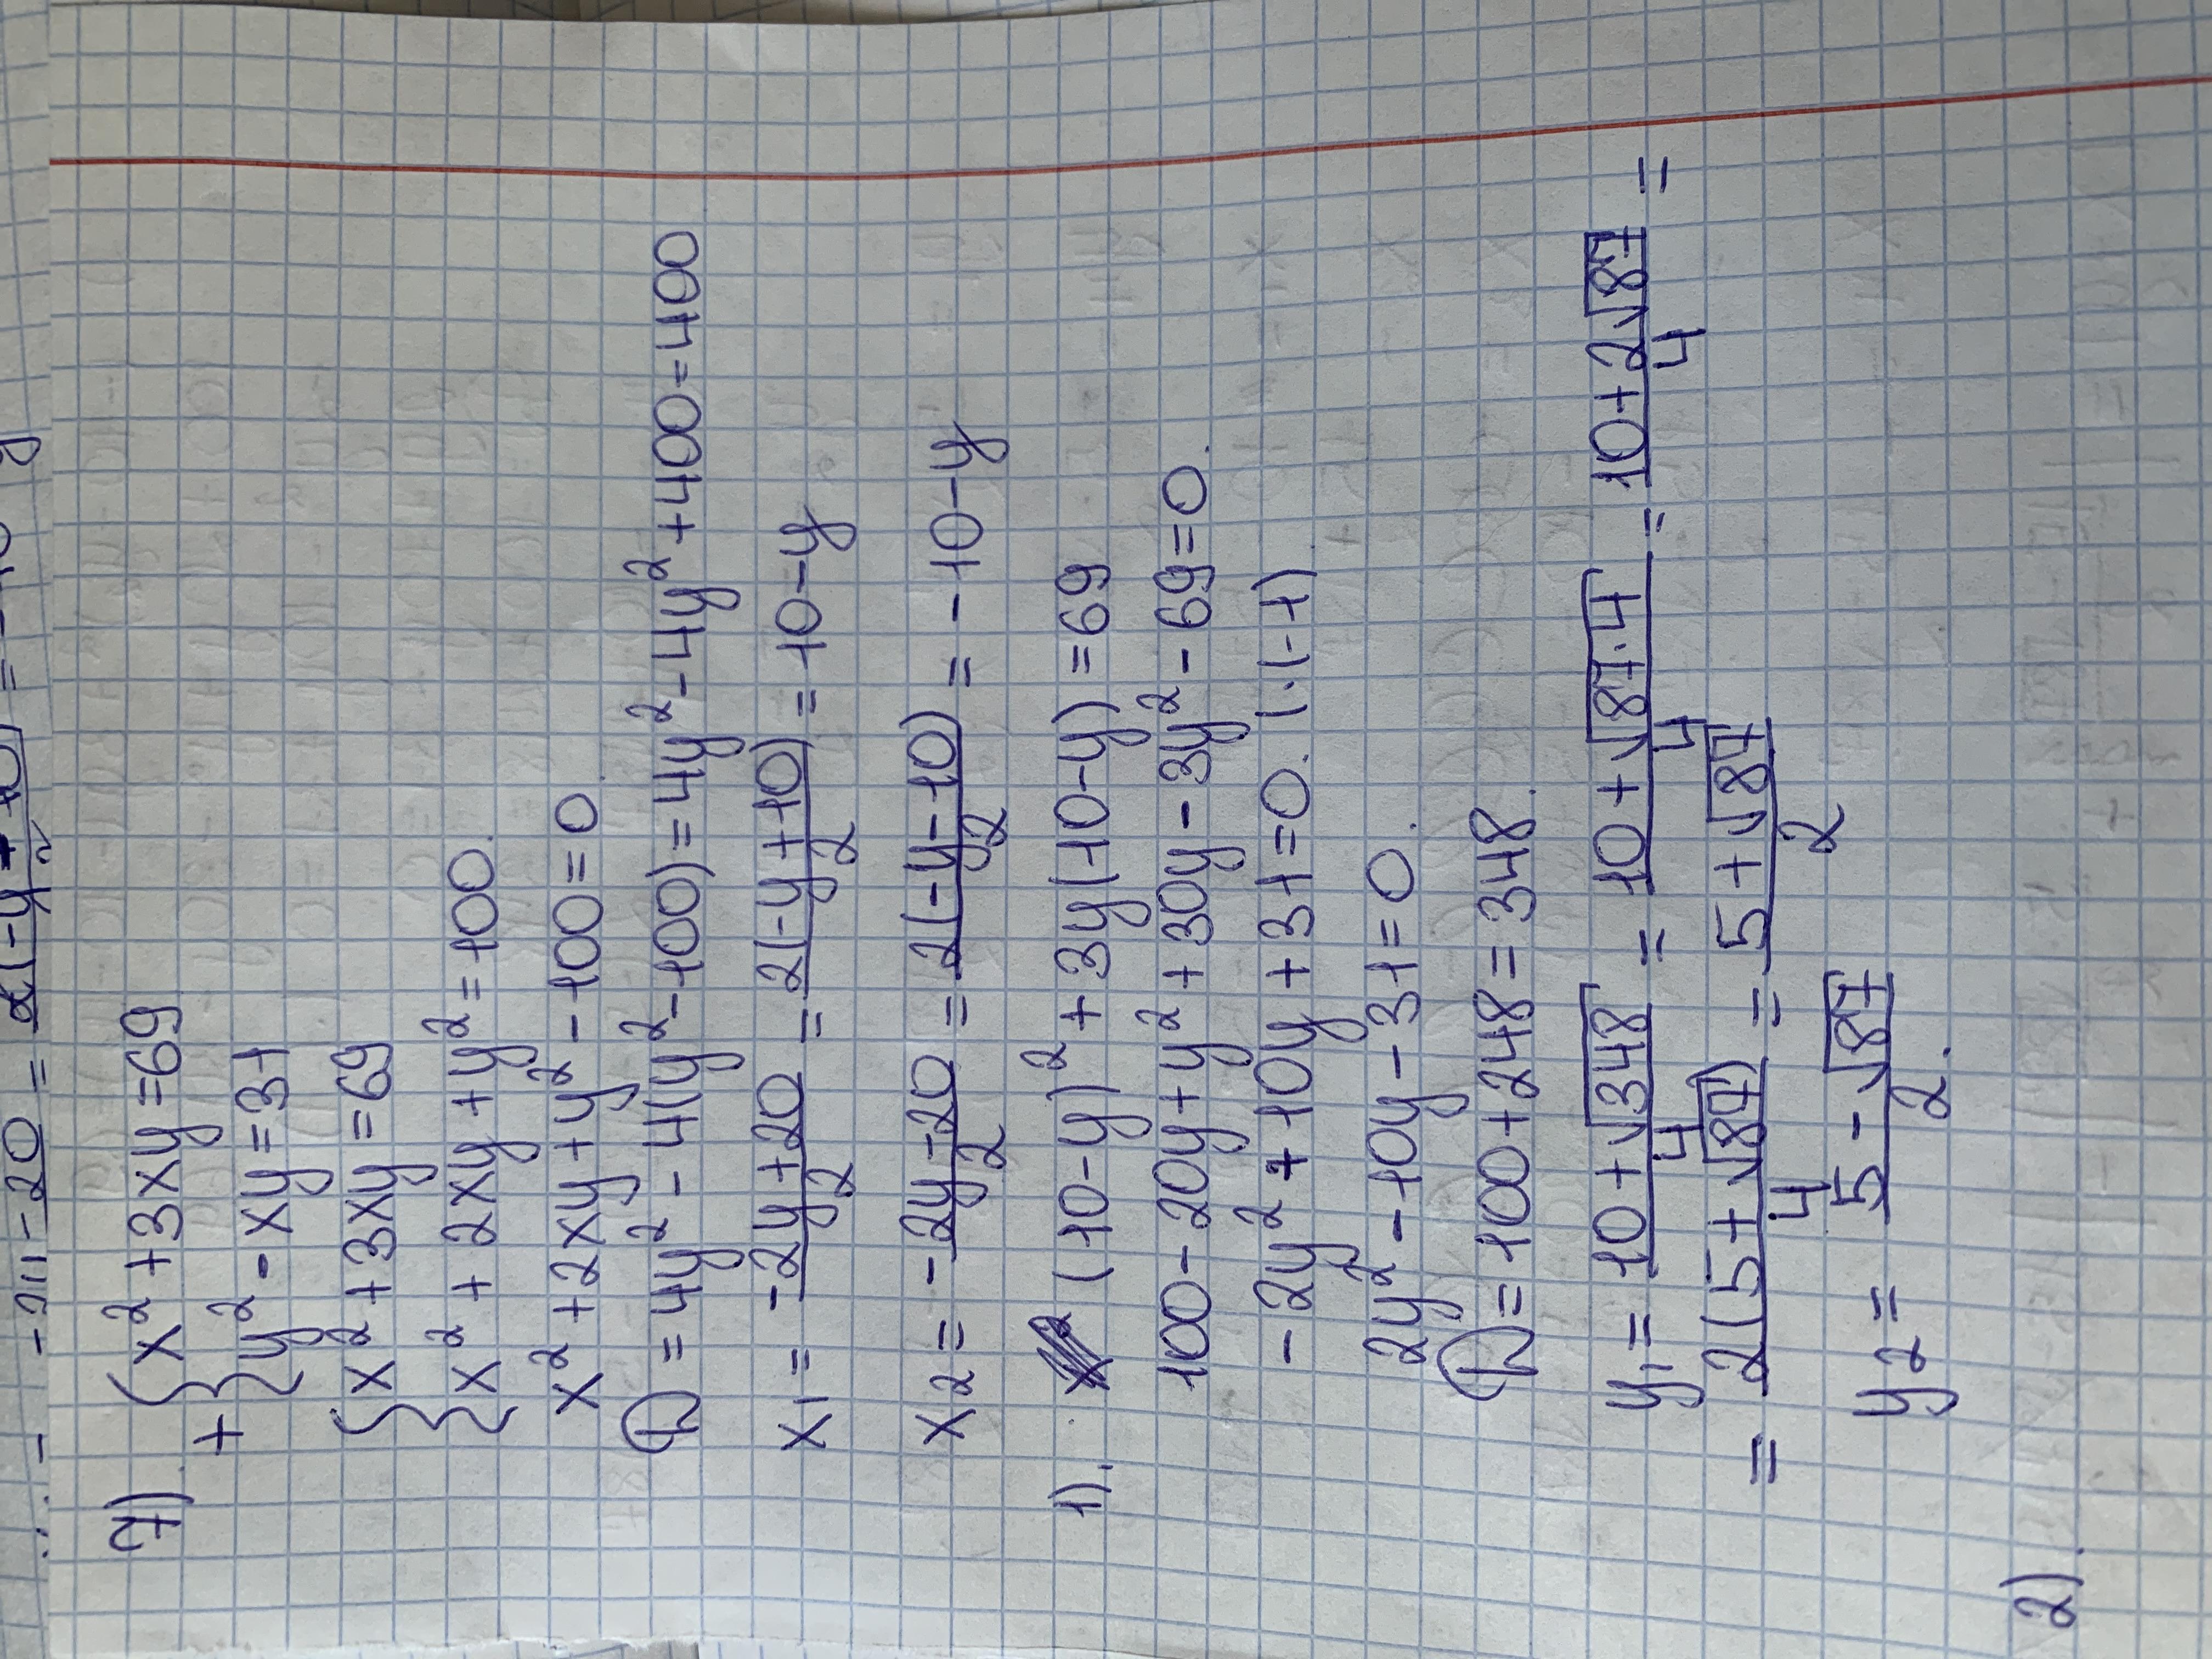 7). { x² + 3xy = 69
+ { y² - xy = 31
{ x² + 3xy = 69
{ x² + 2xy + y² = 100.
x² + 2xy + y² - 100 = 0
D = 4y² - 4(y² - 100) = 4y² - 4y² + 400 = 400
x₁ = \frac{-2y + 20}{2} = \frac{2(-y + 10)}{2} = 10 - y
x₂ = \frac{-2y - 20}{2} = \frac{2(-y - 10)}{2} = -10 - y
1). (10 - y)² + 3y(10 - y) = 69
100 - 20y + y² + 30y - 3y² - 69 = 0.
-2y² + 10y + 31 = 0. | · (-1)
2y² - 10y - 31 = 0.
D = 100 + 248 = 348.
y₁ = \frac{10 + √348}{4} = \frac{10 + √87·4}{4} = \frac{10 + 2√87}{4} =
= \frac{2(5 + √87)}{4} = \frac{5 + √87}{2}
y₂ = \frac{5 - √87}{2}.
2).